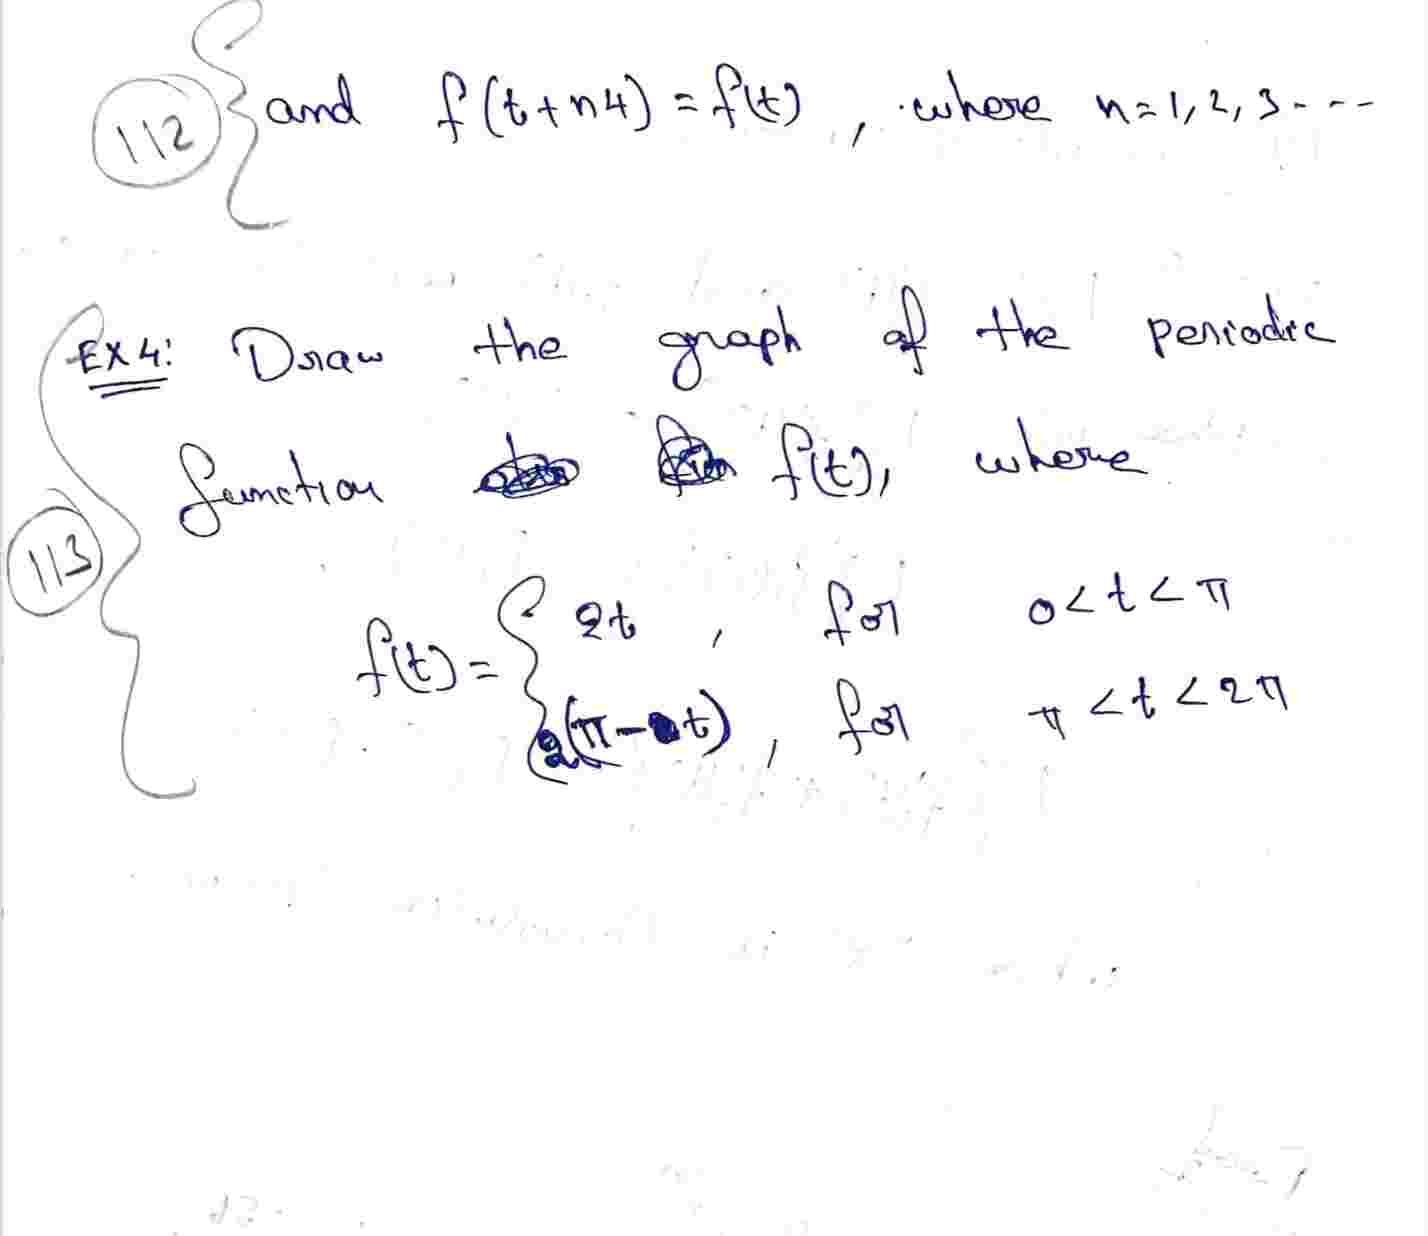 112 and f(t+n4) = f(t) , where n=1, 2, 3 - - -
EX 4: Draw the graph of the periodic
function f(t), where
113
f(t) = { 2t , for 0 < t < π
2(π - t) , for π < t < 2π